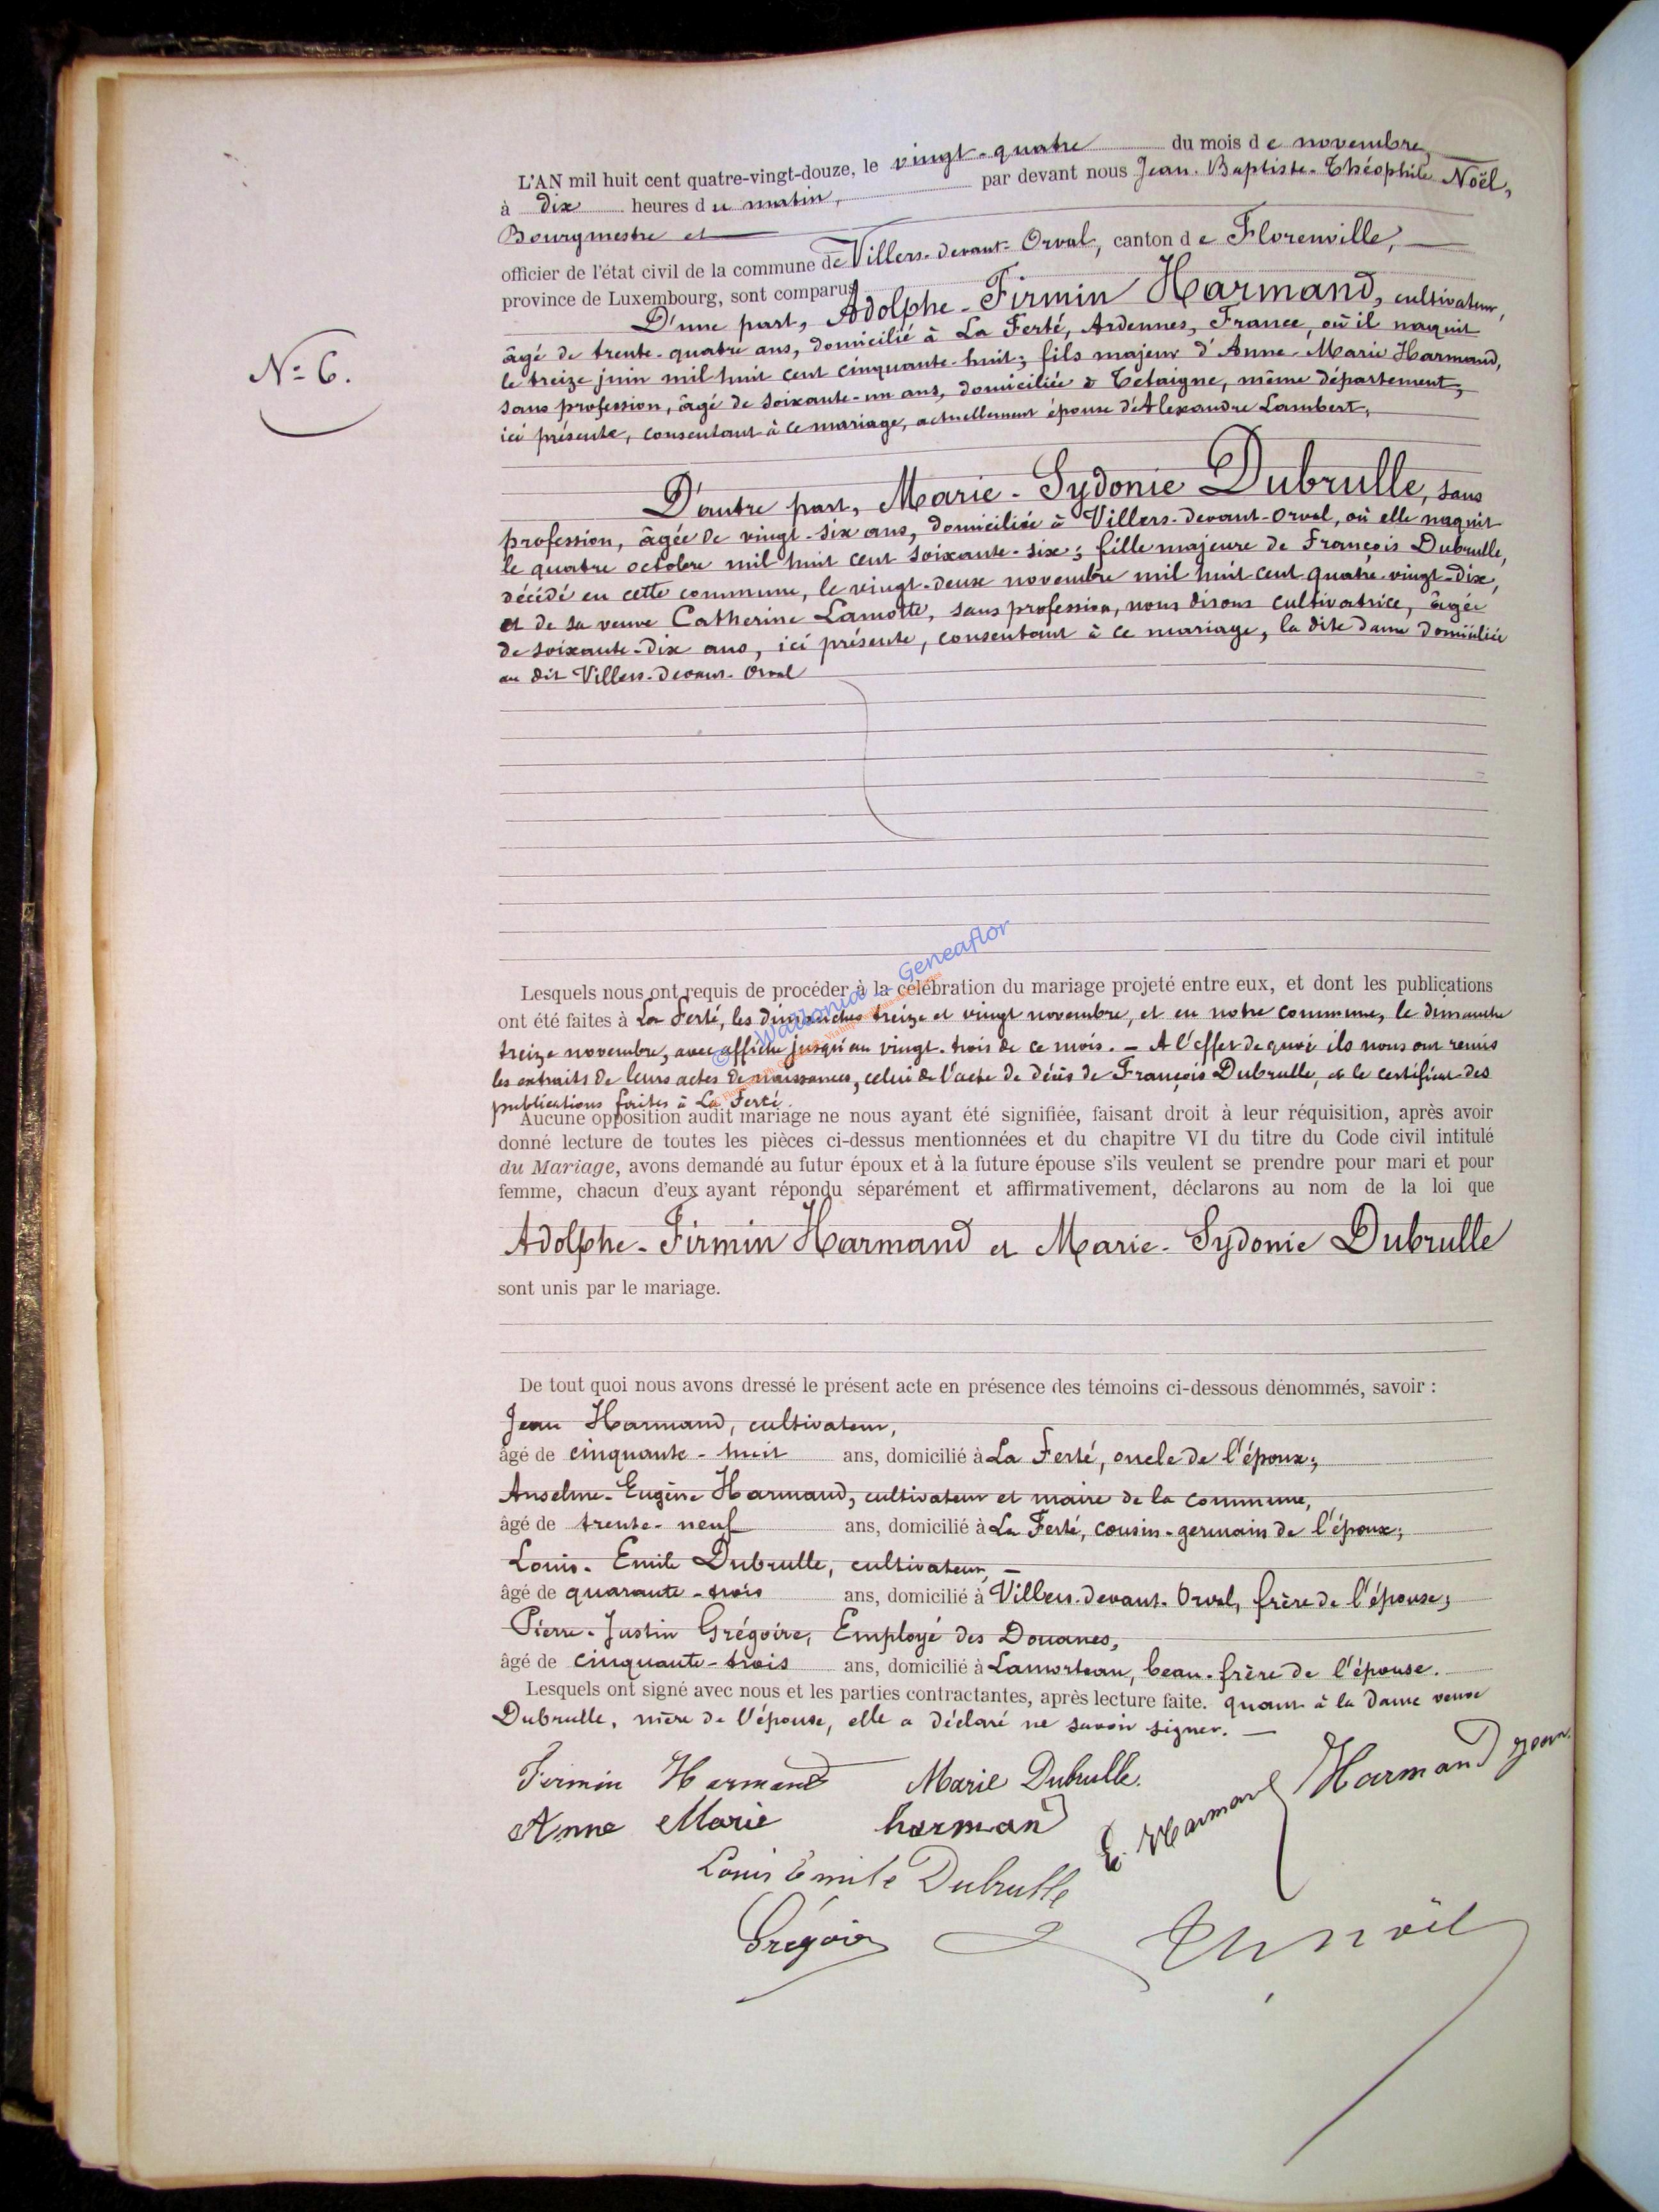 L'AN mil huit cent quatre-vingt-douze, le vingt-quatre du mois de novembre,
à dix heures du matin, par devant nous Jean-Baptiste-Théophile Noël,
Bourgmestre et
officier de l'état civil de la commune de Villers-devant-Orval, canton de Florenville,
province de Luxembourg, sont comparus
D'une part, Adolphe-Firmin Harmand, cultivateur,
N° 6.
âgé de trente-quatre ans, domicilié à La Ferté, Ardennes, France, où il naquit
le treize juin mil huit cent cinquante-huit; fils majeur d'Anne-Marie Harmand,
sans profession, âgé de soixante-un ans, domiciliée à Tétaigne, même département,
ici présente, consentant à ce mariage, actuellement épouse d'Alexandre Lambert,
D'autre part, Marie-Sydonie Dubrulle, sans
profession, âgée de vingt-six ans, domiciliée à Villers-devant-Orval, où elle naquit
le quatre octobre mil huit cent soixante-six; fille majeure de François Dubrulle,
décédé en cette commune, le vingt-deux novembre mil huit cent quatre-vingt-dix,
et de sa veuve Catherine Lamotte, sans profession, nous disons cultivatrice, âgée
de soixante-dix ans, ici présente, consentant à ce mariage, la dite dame domiciliée
au dit Villers-devant-Orval
© Wallonia - Geneaflor
Lesquels nous ont requis de procéder à la célébration du mariage projeté entre eux, et dont les publications
ont été faites à La Ferté, les dimanches treize et vingt novembre, et en notre commune, le dimanche
treize novembre, avec affiche jusqu'au vingt-trois de ce mois. - A l'effet de quoi ils nous ont remis
les extraits de leurs actes de naissances, celui de l'acte de décès de François Dubrulle, et le certificat des
publications faites à La Ferté.
Aucune opposition audit mariage ne nous ayant été signifiée, faisant droit à leur réquisition, après avoir
donné lecture de toutes les pièces ci-dessus mentionnées et du chapitre VI du titre du Code civil intitulé
du Mariage, avons demandé au futur époux et à la future épouse s'ils veulent se prendre pour mari et pour
femme, chacun d'eux ayant répondu séparément et affirmativement, déclarons au nom de la loi que
Adolphe-Firmin Harmand et Marie-Sydonie Dubrulle
sont unis par le mariage.
De tout quoi nous avons dressé le présent acte en présence des témoins ci-dessous dénommés, savoir :
Jean Harmand, cultivateur,
âgé de cinquante-huit ans, domicilié à La Ferté, oncle de l'époux;
Anselme-Eugène Harmand, cultivateur et maire de la commune,
âgé de trente-neuf ans, domicilié à La Ferté, cousin-germain de l'époux;
Louis-Emile Dubrulle, cultivateur, -
âgé de quarante-trois ans, domicilié à Villers-devant-Orval, frère de l'épouse;
Pierre-Justin Grégoire, Employé des Douanes,
âgé de cinquante-trois ans, domicilié à Lamorteau, beau-frère de l'épouse.
Lesquels ont signé avec nous et les parties contractantes, après lecture faite. quant à la dame veuve
Dubrulle, mère de l'épouse, elle a déclaré ne savoir signer. -
Firmin Harmand Marie Dubrulle. Harmand Jean
Anne Marie harmand E. Harmand
Louis Emile Dubrulle
Grégoire Th Noël